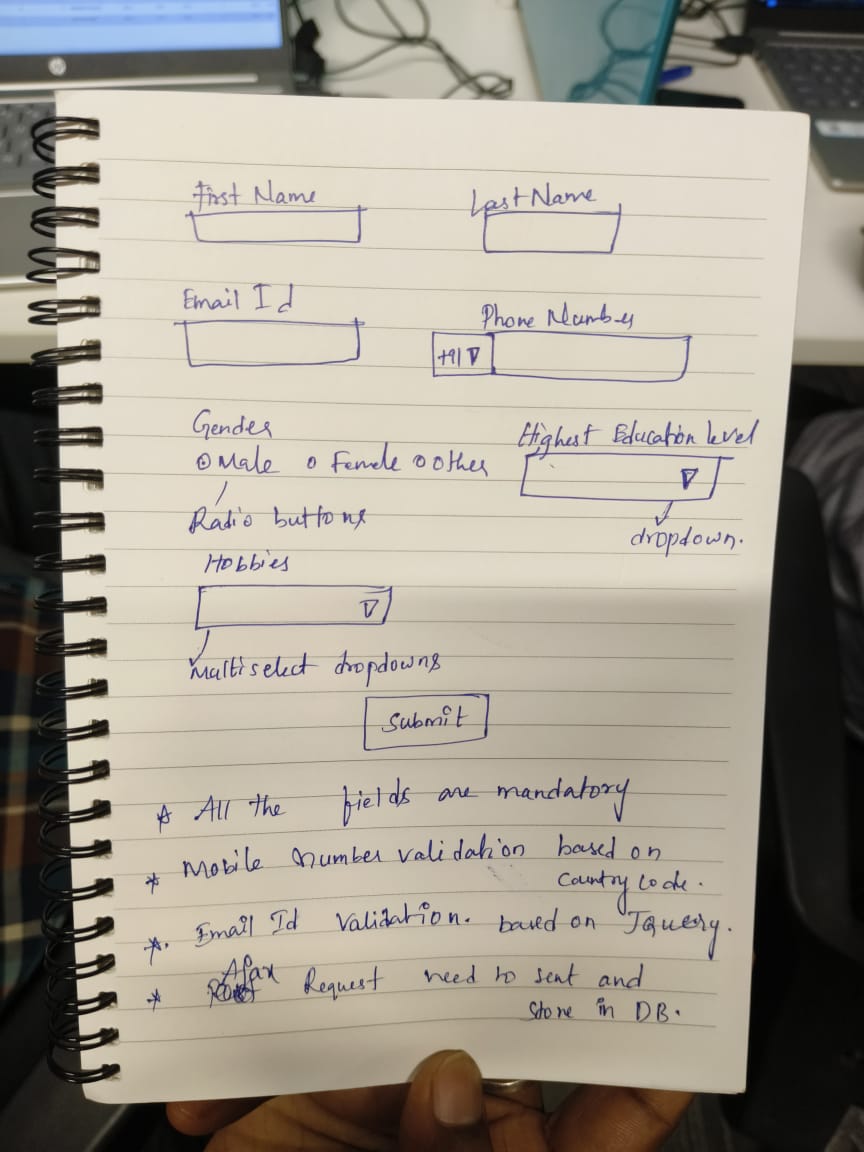 First Name Last Name
Email Id Phone Number
+91
Gender Highest Education level
Male Female Other
Radio buttons dropdown.
Hobbies
Multiselect dropdowns
Submit
* All the fields are mandatory
* Mobile number validation based on
Country Code.
*. Email Id Validation. based on JQuery.
* Ajax Request need to sent and
Store in DB.